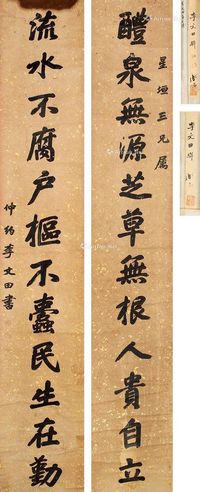 醴泉無源芝草無根人貴自立
星垣三兄屬
流水不腐户樞不蠹民生在勤
仲約李文田書
李文田
李文田